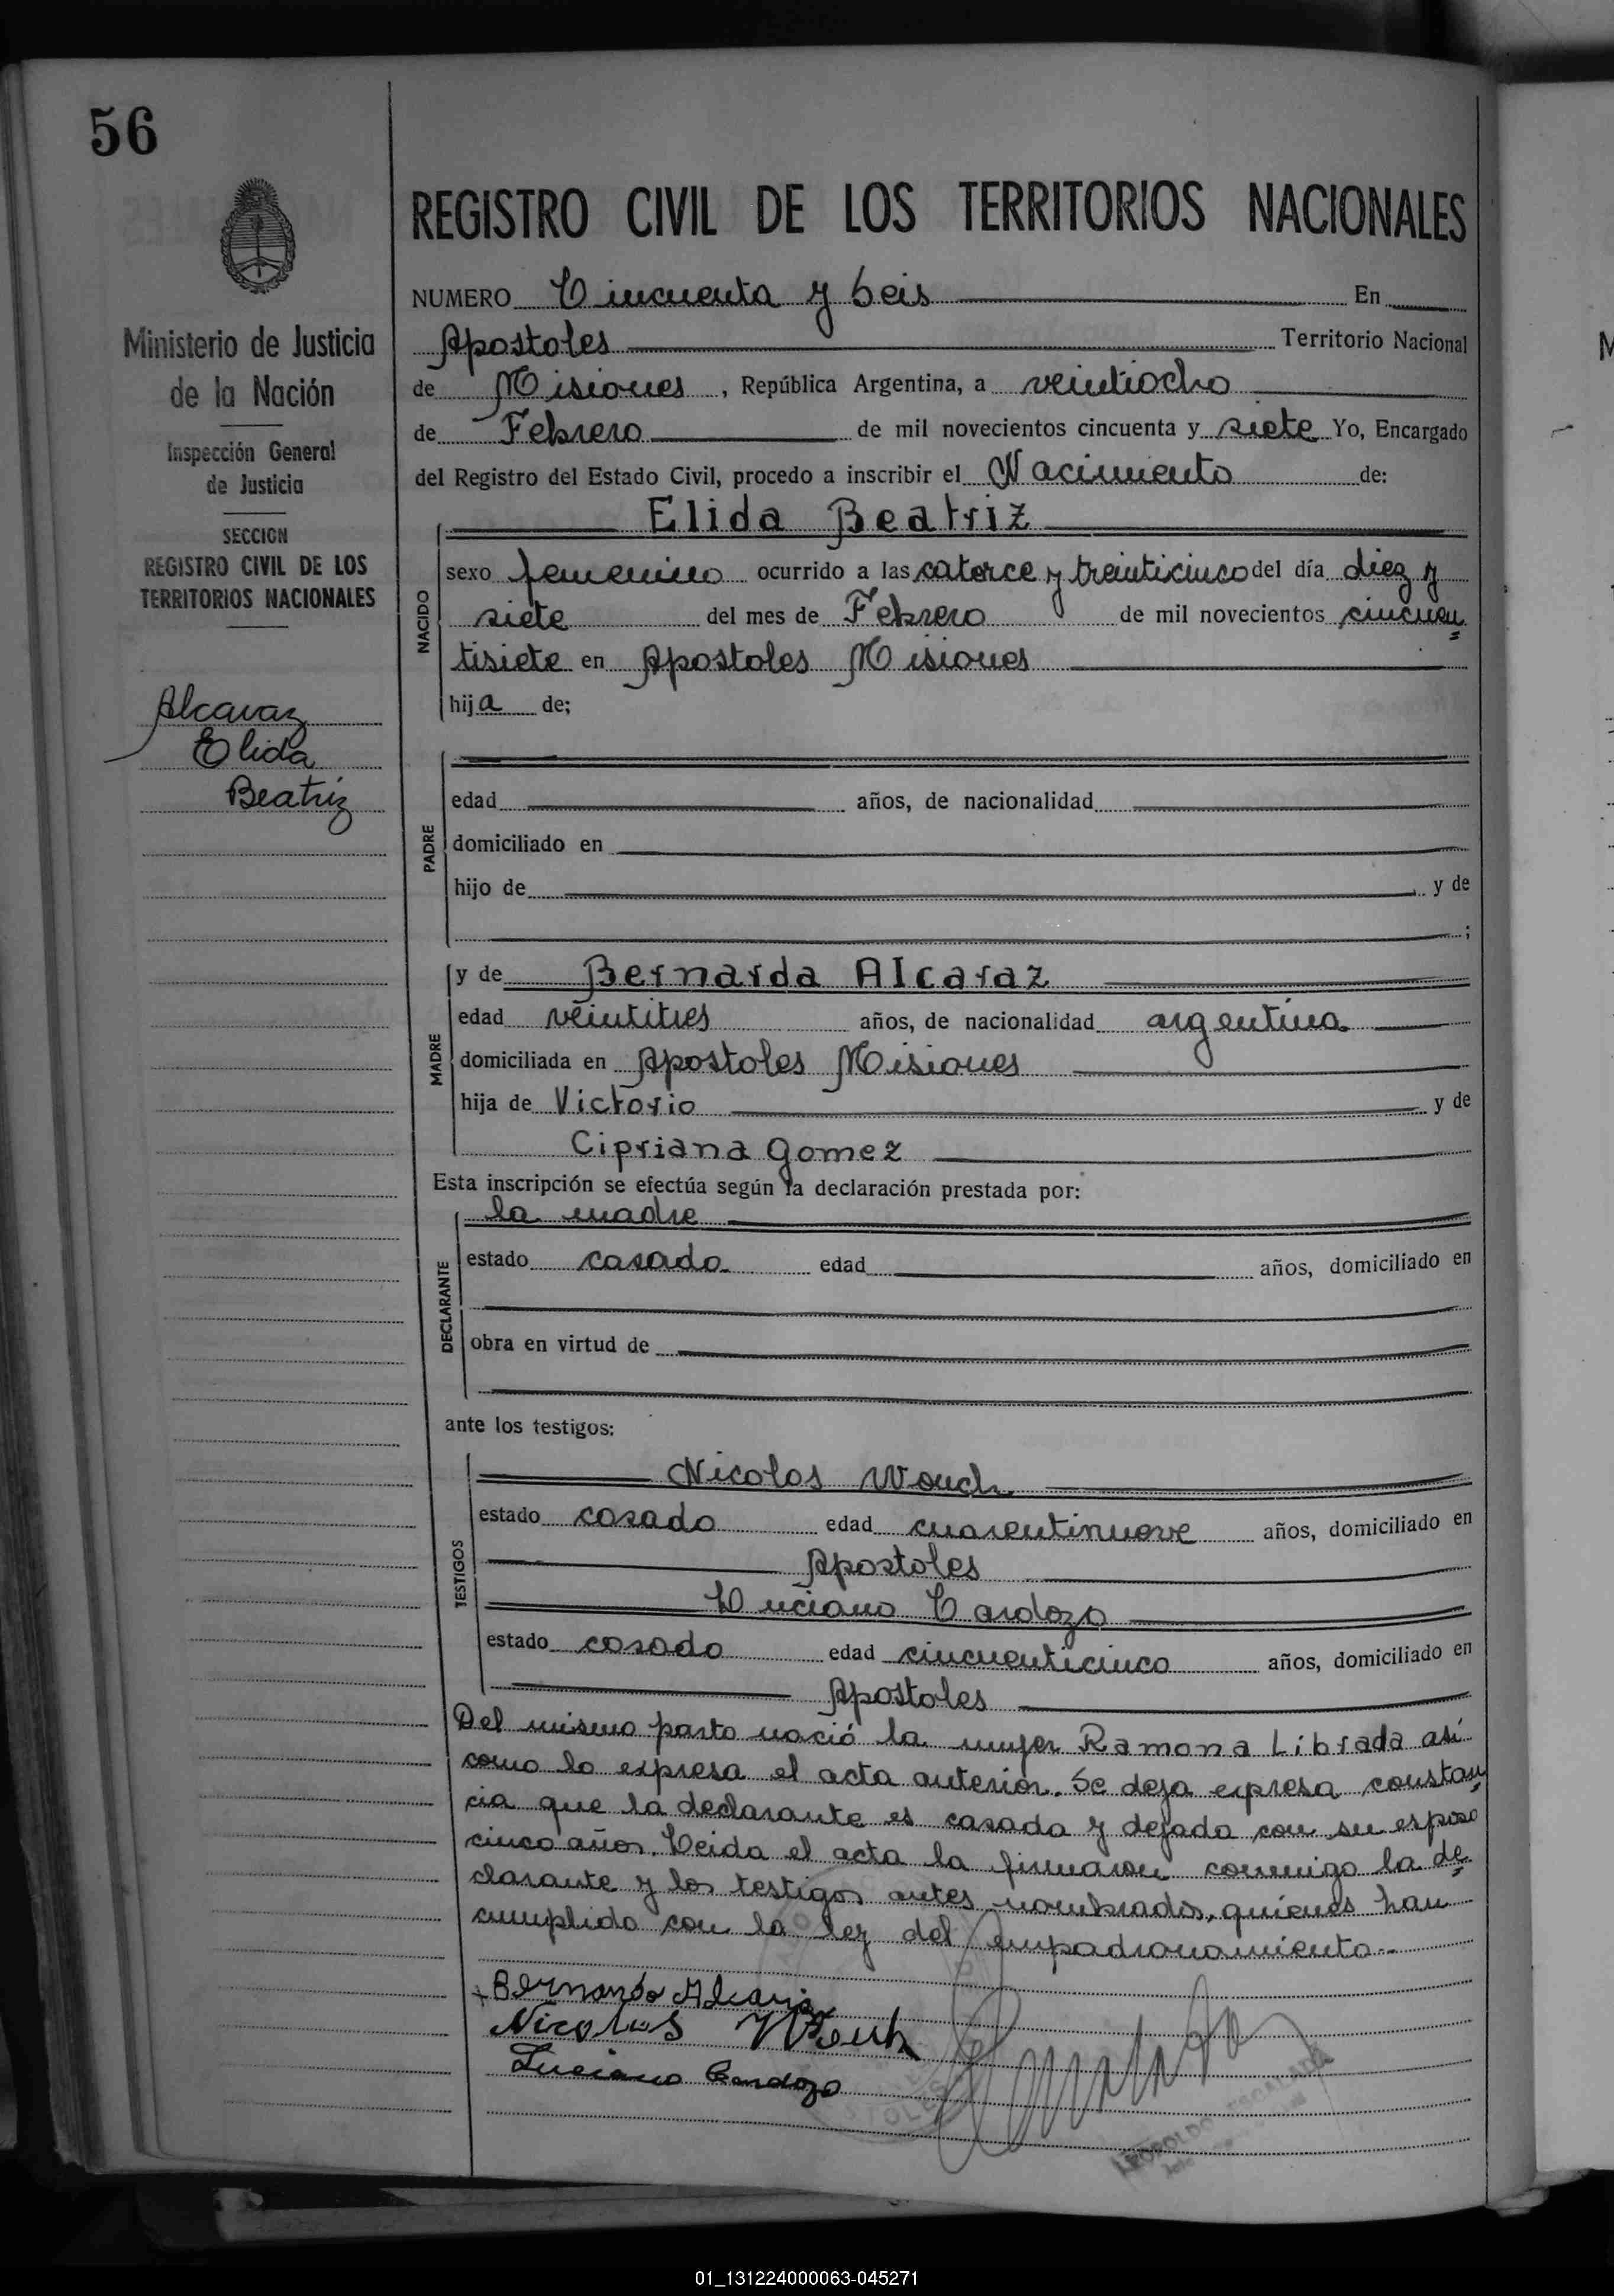 56
REGISTRO CIVIL DE LOS TERRITORIOS NACIONALES
NUMERO Cincuenta y seis En
Apostoles Territorio Nacional
de Misiones, República Argentina, a veintiocho
de Febrero de mil novecientos cincuenta y siete Yo, Encargado
del Registro del Estado Civil, procedo a inscribir el Nacimiento de:
Ministerio de Justicia
de la Nación
Inspección General
de Justicia
SECCION
REGISTRO CIVIL DE LOS
TERRITORIOS NACIONALES
Alcaraz
Elida
Beatriz
NACIDO
Elida Beatriz
sexo femenino ocurrido a las catorce y treinticinco del día diez y
siete del mes de Febrero de mil novecientos cincuen
tisiete en Apostoles Misiones
hija de;
PADRE
edad años, de nacionalidad
domiciliado en
hijo de y de
;
MADRE
y de Bernarda Alcaraz
edad veintitres años, de nacionalidad argentina
domiciliada en Apostoles Misiones
hija de Victorio y de
Cipriana Gomez
Esta inscripción se efectúa según la declaración prestada por:
DECLARANTE
la madre
estado casada edad años, domiciliado en
obra en virtud de
ante los testigos:
TESTIGOS
Nicolas Wouch
estado casado edad cuarentinueve años, domiciliado en
Apostoles
Luciano Cardozo
estado casado edad cincuenticinco años, domiciliado en
Apostoles
Del mismo parto nació la mujer Ramona Librada así
como lo expresa el acta anterior. Se deja expresa constan
cia que la declarante es casada y dejada con su esposo
cinco años. Leida el acta la firmaron conmigo la de
clarante y los testigos antes nombrados, quienes han
cumplido con la ley del empadronamiento..
Bernarda Alcaraz
Nicolas Wouh
Luciano Cardozo
LEOPOLDO ESCALADA
01_131224000063-045271